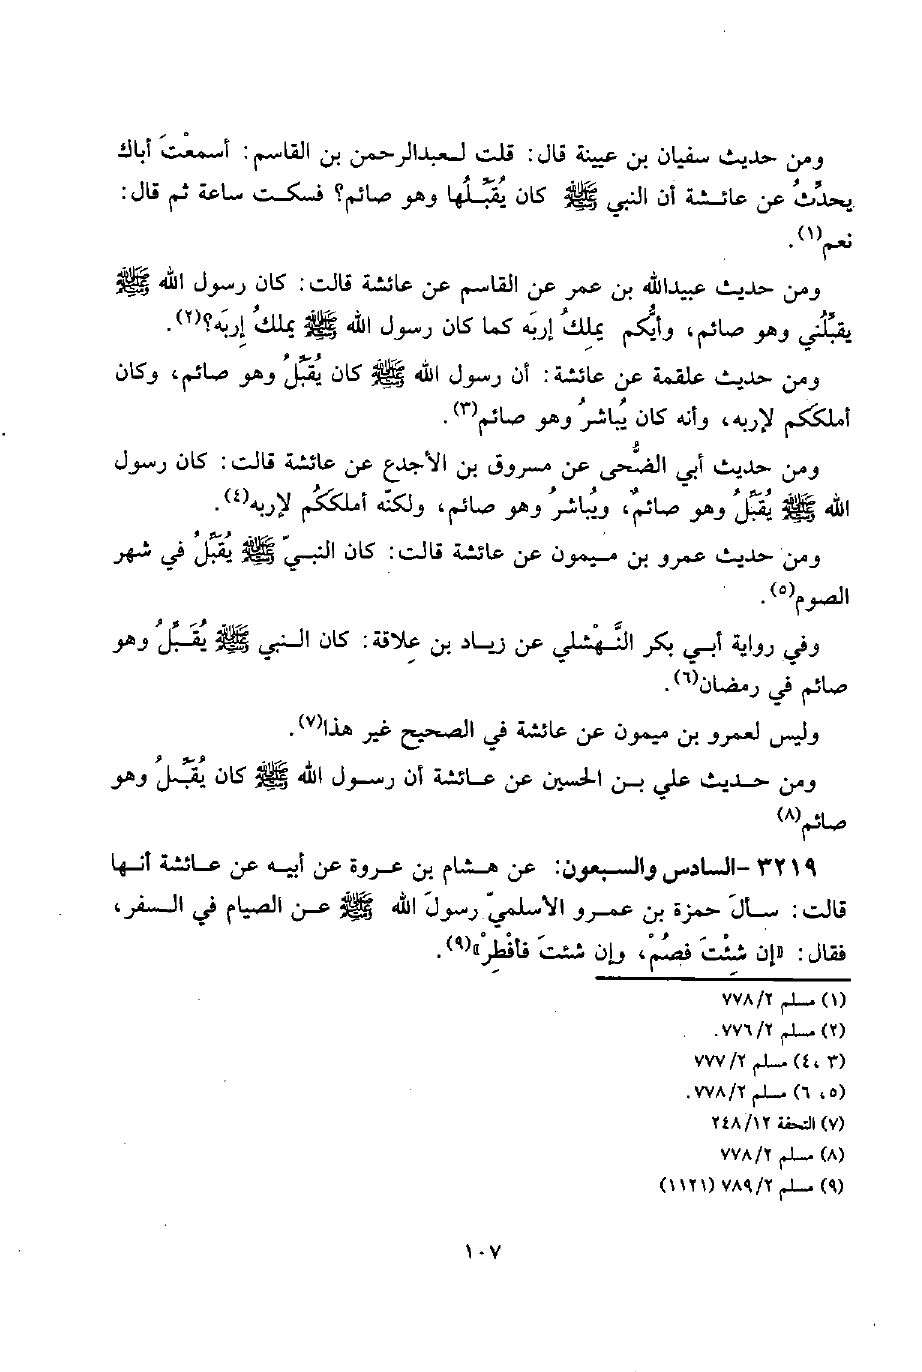 ومن حديث سفيان بن عيينة قال: قلت لـعبدالرحمن بن القاسم: أسمعْتَ أباك
يحدِّثُ عن عائـشة أن النبي ﷺ كان يُقبِّـلُها وهو صائم؟ فسكـت ساعة ثم قال:
نعم(١).
ومن حديث عبيدالله بن عمر عن القاسم عن عائشة قالت: كان رسول الله ﷺ
يقبِّلُني وهو صائم، وأيُّكم يملِكُ إربَه كما كان رسول الله ﷺ يملكُ إربَه؟(٢).
ومن حديث علقمة عن عائشة: أن رسول الله ﷺ كان يُقبِّلُ وهو صائم، وكان
أملكَكم لإربه، وأنه كان يُباشرُ وهو صائم(٣).
ومن حديث أبي الضُّحى عن مسروق بن الأجدع عن عائشة قالت: كان رسول
الله ﷺ يُقبِّلُ وهو صائمٌ، ويُباشرُ وهو صائم، ولكنّه أملككُم لإربه(٤).
ومن حديث عمرو بن مـيمون عن عائشة قالت: كان النبيّ ﷺ يُقبِّلُ في شهر
الصوم(٥).
وفي رواية أبـي بكر النَّهْشلي عن زيـاد بن عِلاقة: كان الـنبي ﷺ يُقَبِّـلُ وهو
صائم في رمضان(٦).
وليس لعمرو بن ميمون عن عائشة في الصحيح غير هذا(٧).
ومن حـديث علي بـن الحسين عن عـائشة أن رسـول الله ﷺ كان يُقبِّـلُ وهو
صائم(٨)
٣٢١٩ -السادس والسبعون: عن هشام بن عـروة عن أبيـه عن عـائشة أنـها
قالت: سـألَ حمزة بن عمـرو الأسلميّ رسولَ الله ﷺ عـن الصيام في الـسفر،
فقال: «إن شِئْتَ فصُمْ، وإن شئتَ فأفْطِرْ»(٩).
(١) مسلم ٢/ ٧٧٨
(٢) مسلم ٢/ ٧٧٦.
(٣ ،٤) مسلم ٢/ ٧٧٧
(٥، ٦) مسلم ٢/ ٧٧٨.
(٧) التحفة ١٢/ ٢٤٨
(٨) مسلم ٢/ ٧٧٨
(٩) مسلم ٢/ ٧٨٩ (١١٢١)
١٠٧